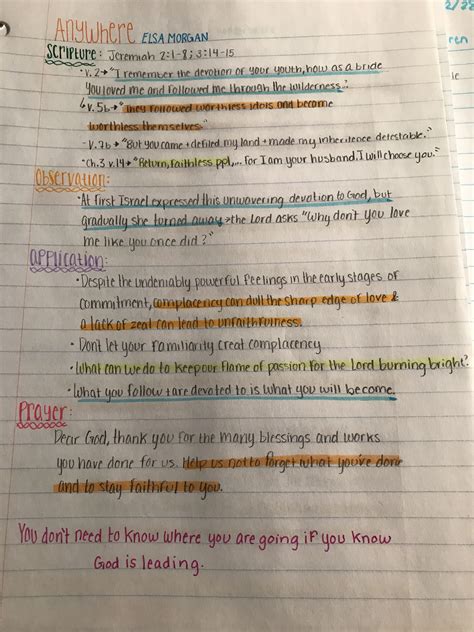 2/28
Anywhere ELSA MORGAN
Scripture: Jeremiah 2:1-8; 3:14-15
ren
· v. 2→ "I remember the devotion of your youth, how as a bride
ie
you loved me and followed me through the wilderness..."
↳ v. 5b→ "They followed worthless idols and become
worthless themselves."
· v. 7b→ "But you came + defiled my land + made my inheritence detestable."
· Ch. 3 v. 14→ "Return, faithless ppl,... For I am your husband. I will choose you."
Observation:
· At first Israel expressed this unwavering devotion to God, but
gradually she turned away → the Lord asks "Why don't you love
me like you once did?"
application:
· Despite the undeniably powerful feelings in the early stages of
commitment, complacency can dull the sharp edge of love &
a lack of zeal can lead to unfaithfulness.
· Dont let your familiarity creat complacency.
· What can we do to keep our flame of passion for the Lord burning bright?
· What you follow + are devoted to is what you will become.
Prayer:
Dear God, thank you for the many blessings and works
you have done for us. Help us not to forget what you've done
and to stay faithful to you.
You don't need to know where you are going if you know
God is leading.